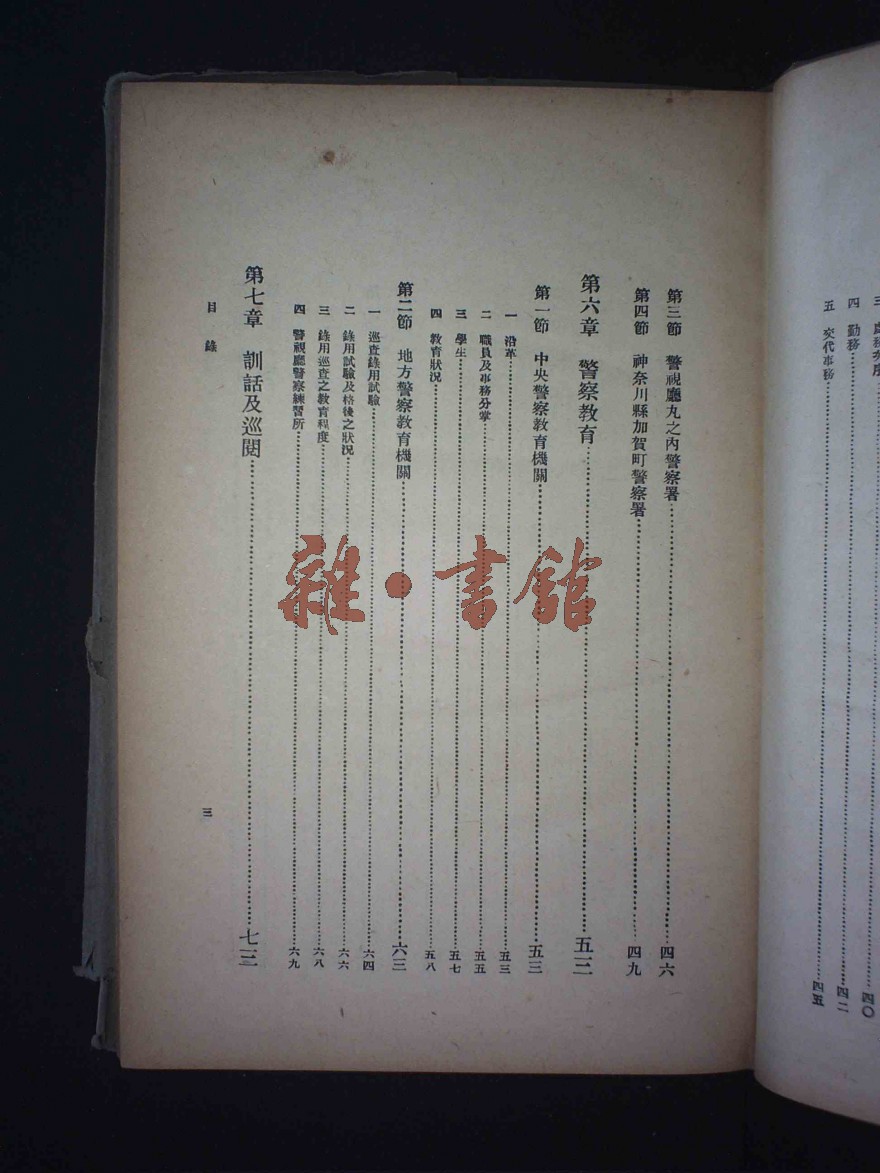 三 處務 四〇
四 勤務……四二
五 交代事務……四五
第三節 警視廳丸之內警察署……四六
第四節 神奈川縣加賀町警察署……四九
第六章 警察教育……五三
第一節 中央警察教育機關……五三
一 沿革……五三
二 職員及事務分掌……五五
三 學生……五七
四 教育狀況……五八
第二節 地方警察教育機關……六三
一 巡查錄用試驗……六四
二 錄用試驗及格後之狀況……六六
三 錄用巡查之教育程度……六八
四 警視廳警察練習所……六九
第七章 訓話及巡閱……七三
目錄
三
雜·書館